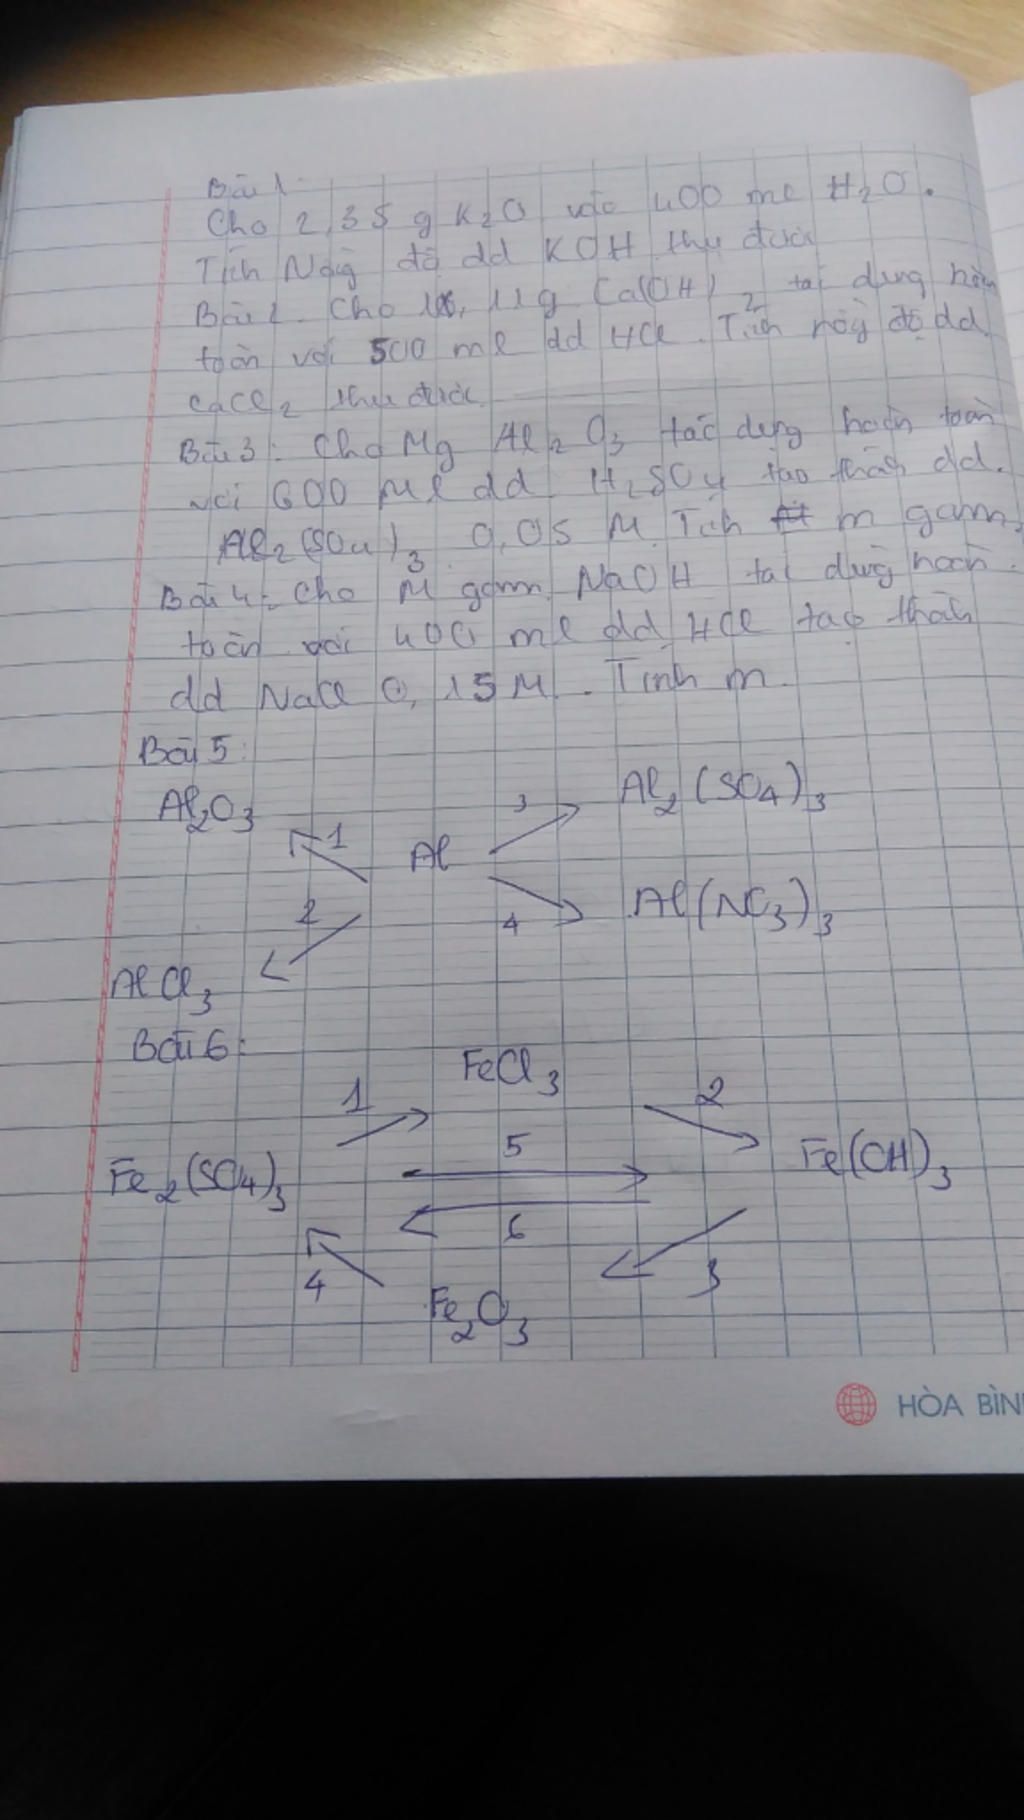 Bài 1
Cho 2,35 g K2O vào 400 ml H2O.
Tích Nồng độ dd KOH thu được
Bài 2. Cho 11g Ca(OH)2 tác dụng hoàn
toàn với 500 ml dd HCl. Tích nồng độ dd
CaCl2 thu được
Bài 3: Cho Mg Al2O3 tác dụng hoàn toàn
với 600 Ml dd H2SO4 tạo thành dd.
Al2(SO4)3 0,05 M. Tích m gam.
Bài 4: Cho M gam NaOH tác dụng hoàn
toàn với 400 ml dd HCl tạo thành
dd NaCl 0,15M. Tính m.
Bài 5:
Al2O3 1 Al 3 Al2(SO4)3
2 4 Al(NO3)3
AlCl3
Bài 6:
FeCl3
1 2
Fe2(SO4)3 5 Fe(OH)3
6
4 3
Fe2O3
HÒA BÌN